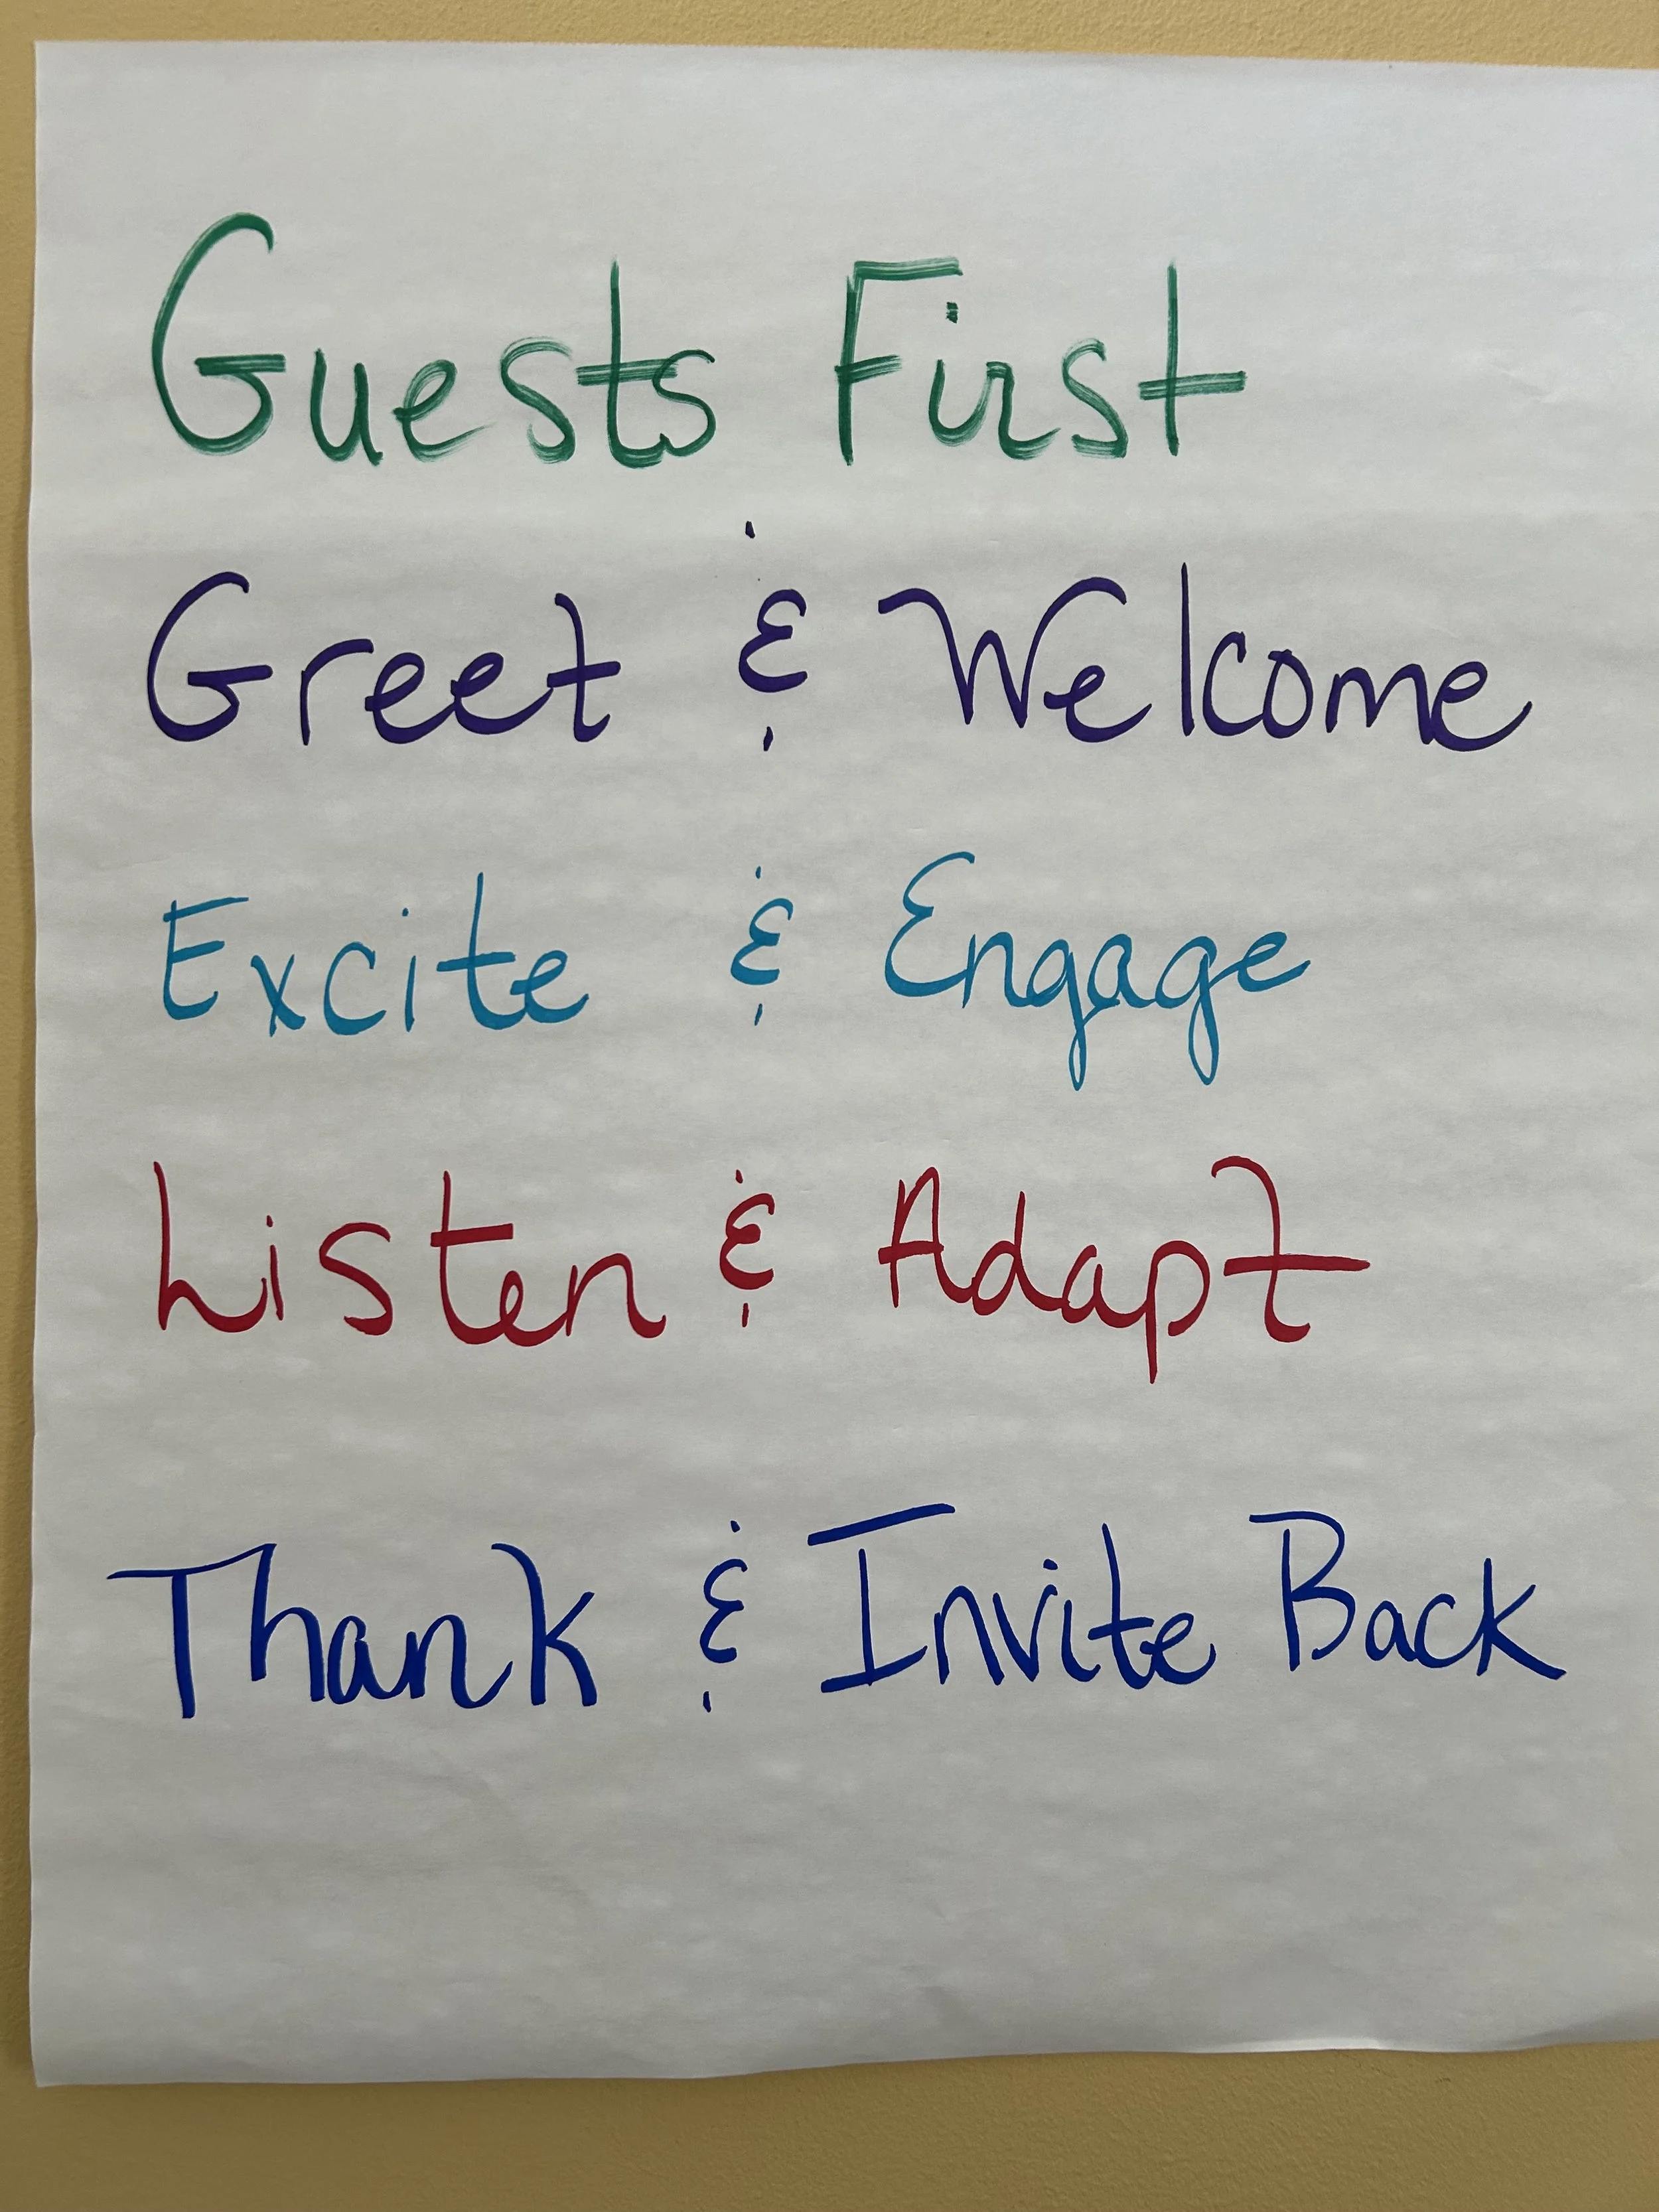 Guests First
Greet & Welcome
Excite & Engage
Listen & Adapt
Thank & Invite Back